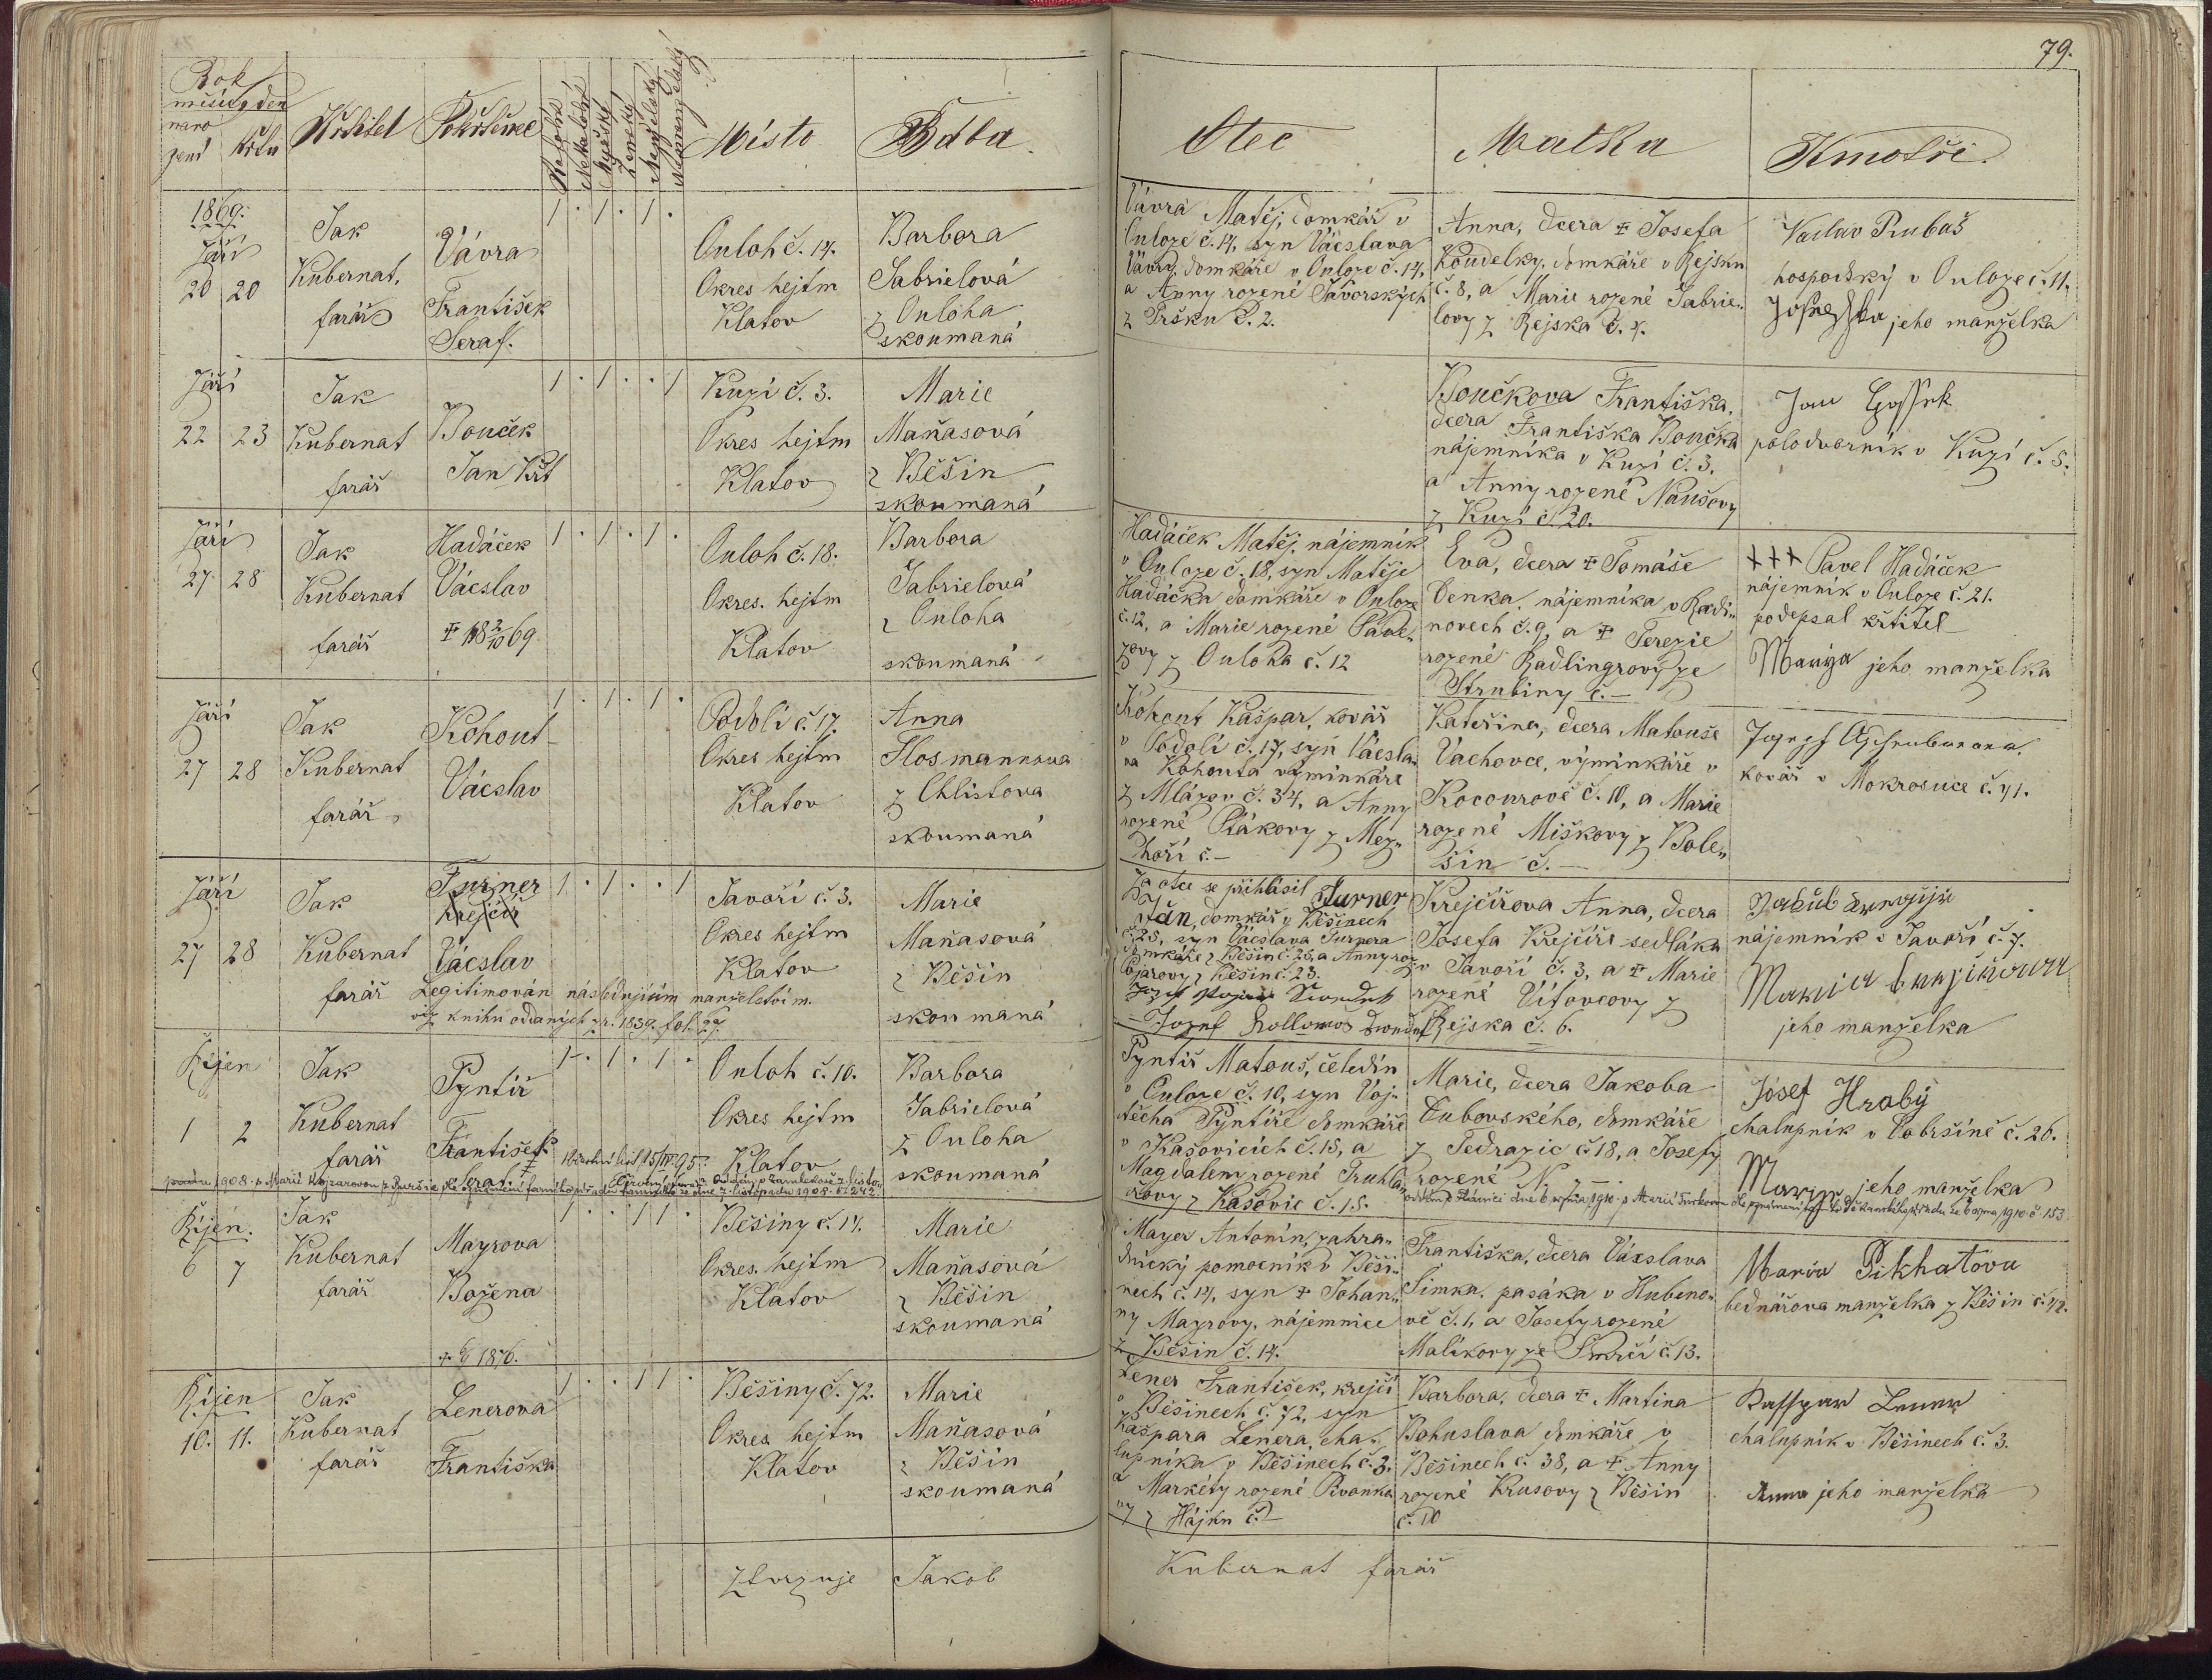 79.
Rok
měsíc, den
naro
zení křtu
Křtitel
Pokřtěnec
Místo
Bába
Otec
Matka
Kmotři.
1869.
Září
20 20
Jak
Kubernat,
farář
Vávra
František
Seraf.
1 . 1 . 1 .
Ouloh č. 14.
Okres hejtm
Klatov
Barbora
Jabrielová
z Ouloha
skoumaná
Vávra Matěj, domkář v
Ouloze č. 14, syn Vácslava
Vávry, domkáře v Ouloze č. 14,
a Anny rozené Javorských
č. 2.
Anna, dcera ‡ Josefa
Koudelky, domkáře v Rejsku
č. 8, a Marie rozené Jabrie-
lovy z Rejska č. 4.
Vaclav Rubaš
hospodský v Ouloze č. 11.
jeho manželka
Září
22 23
Jak
Kubernat
farář
Bouček
Jan Křt
1 . 1 . . 1
Kuzí č. 3.
Okres hejtm
Klatov
Marie
Maňasová
z Běšin
skoumaná
Boučkova Františka,
dcera Františka Boučka
nájemníka v Kuzí č. 3.
a Anny rozené Naušovy
z Kuzí č. 20.
Jan
polodvorník v Kuzí č. 5.
Září
27 28
Jak
Kubernat
farář
Hadáček
Vácslav
‡ 18 2/10 69
1 . 1 . 1 .
Ouloh č. 18.
Okres. hejtm
Klatov
Barbora
Jabrielová
z Ouloha
skoumaná
Hadáček Matěj, nájemník
v Ouloze č. 18, syn Matěje
Hadáčka domkáře v Ouloze
č. 12, a Marie rozené
z Ouloha č. 12
Eva, dcera ‡ Tomáše
Denka, nájemníka v Radi-
novech č. 9, a ‡ Terezie
rozené Radlingrovy ze
Strubiny č. —
+++ Pavel Hadáček
nájemník v Ouloze č. 21.
podepsal křtitel
Marya jeho manželka
Září
27 28
Jak
Kubernat
farář
Kohout
Vácslav
1 . 1 . 1 .
Podolí č. 17.
Okres hejtm
Klatov
Anna
Flosmannova
z Chlistova
skoumaná
Kohout Kašpar, kovář
v Podolí č. 17, syn Vácsla-
va Kohouta výminkáře
z Mlázov č. 34, a Anny
rozené Ptákovy z Mez-
hoří č. —
Kateřina, dcera Matouše
Vachovce, výminkáře v
Kocourově č. 10, a Marie
rozené Miškovy z Bole-
šin č. —
Josef
kovář v Mokrosuce č. 41.
Září
27 28
Jak
Kubernat
farář
Turner
Krejčíř
Vácslav
Legitimován následujícím manželstvím.
viz knihu oddaných z r. 1839. fol. 97.
1 . 1 . . 1
Javoří č. 3.
Okres hejtm
Klatov
Marie
Maňasová
z Běšin
skoumaná
Za otce se přihlásil Turner
Ján, domkář v Běšinech
č. 25, syn Vácslava Turnera
domkáře z Běšin č. 25, a Anny roz.
z Běšin č. 23.
Krejčířova Anna, dcera
Josefa Krejčíře sedláka
v Javoří č. 3, a ‡ Marie
rozené Vítovcovy z
Rejska č. 6.
Jakub
nájemník v Javoří č. 7.
jeho manželka
Říjen
1 2
Jak
Kubernat
farář
Pyntíř
František
Seraf.
1 . 1 . 1 .
Ouloh č. 10.
Okres hejtm
Klatov
Barbora
Jabrielová
z Ouloha
skoumaná
Pyntíř Matouš, čeledín
v Ouloze č. 10, syn Voj-
těcha Pyntíře domkáře
v Kašovicích č. 15, a
Magdaleny rozené Truhlá-
řovy z Kašovic č. 15.
Marie, dcera Jakoba
Dubovského, domkáře
z Tedražic č. 18, a Josefy
rozené N. z —
Josef Hrabý
chalupník v Dobršíně č. 26.
Marye jeho manželka
Říjen.
6 7
Jak
Kubernat
farář
Mayrova
Božena
1876.
1 . . 1 1 .
Běšiny č. 14.
Okres. hejtm
Klatov
Marie
Maňasová
z Běšin
skoumaná
Mayer Antonín, zahra-
dnický pomocník v Běši-
nech č. 14, syn ‡ Johan-
ny Mayrovy, nájemnice
z Běšin č. 14.
Františka, dcera Vácslava
Šimka, pasáka v Hubeno-
vě č. 1, a Josefy rozené
Malíkovy ze Smrčí č. 13.
Marie Pikhatovu
bednářova manželka z Běšin č. 42.
Říjen
10. 11.
Jak
Kubernat
farář
Lenerova
Františka
1 . . 1 1 .
Běšiny č. 72.
Okres hejtm
Klatov
Marie
Maňasová
z Běšin
skoumaná
Lener František, krejčí
v Běšinech č. 72, syn
Kašpara Lenera, cha-
lupníka v Běšinech č. 3.
a Markéty rozené
z Hájku č. —
Barbora, dcera ‡ Martina
Bohuslava domkáře v
Běšinech č. 38, a ‡ Anny
rozené Krusovy z Běšin
č. 10
Kasspar Lener
chalupník v Běšinech č. 3.
Anna jeho manželka
Ztvrzuje Jakob Kubernat farář